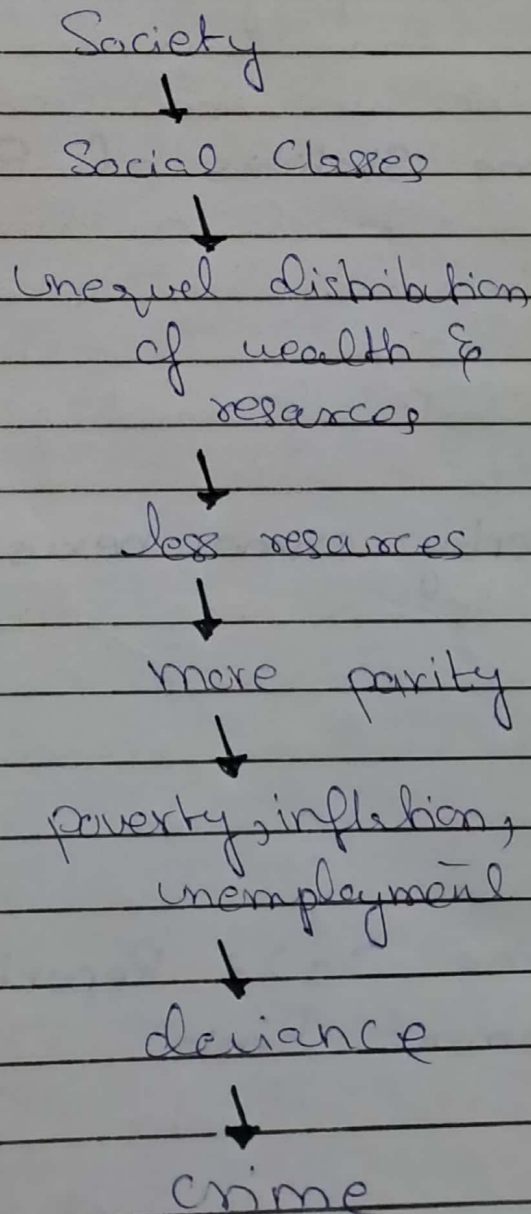 Society
↓
Social Classes
↓
Unequel distribution
of wealth &
resarces
↓
less resarces
↓
more parity
↓
poverty, inflation,
unemployment
↓
deviance
↓
crime